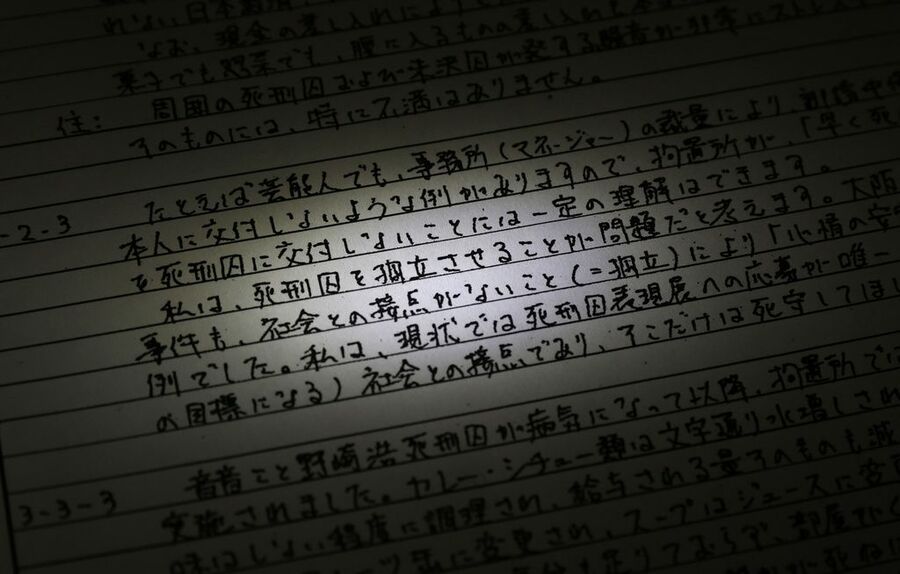 れない日本
なお、現金の差し入れにより
菓子でも惣菜でも、腹に入るものの差し入れ
住： 周囲の死刑囚および未決囚が発する騒音が非常にストレス
そのものには、特に不満はありません。
-2-3 たとえば芸能人でも、事務所（マネージャー）の裁量により、
本人に交付しないような例がありますので、拘置所が、「早く死
を死刑囚に交付しないことには一定の理解はできます。
私は、死刑囚を孤立させることが問題だと考えます。大阪
事件も、社会との接点がないこと（＝孤立）により「心情の安
例でした。私は、現状では死刑囚表現展への応募が唯一
の目標になる）社会との接点であり、そこだけは死守してほし
3-3-3 音音こと野崎浩死刑囚が病気になって以降、拘置所では
実施されました。カレー・シチュー類は文字通り水増しされ
味はしない程度に調理され、給与される量そのものも減
缶に変更され、スープはジュースに変
足りておらず、部屋が